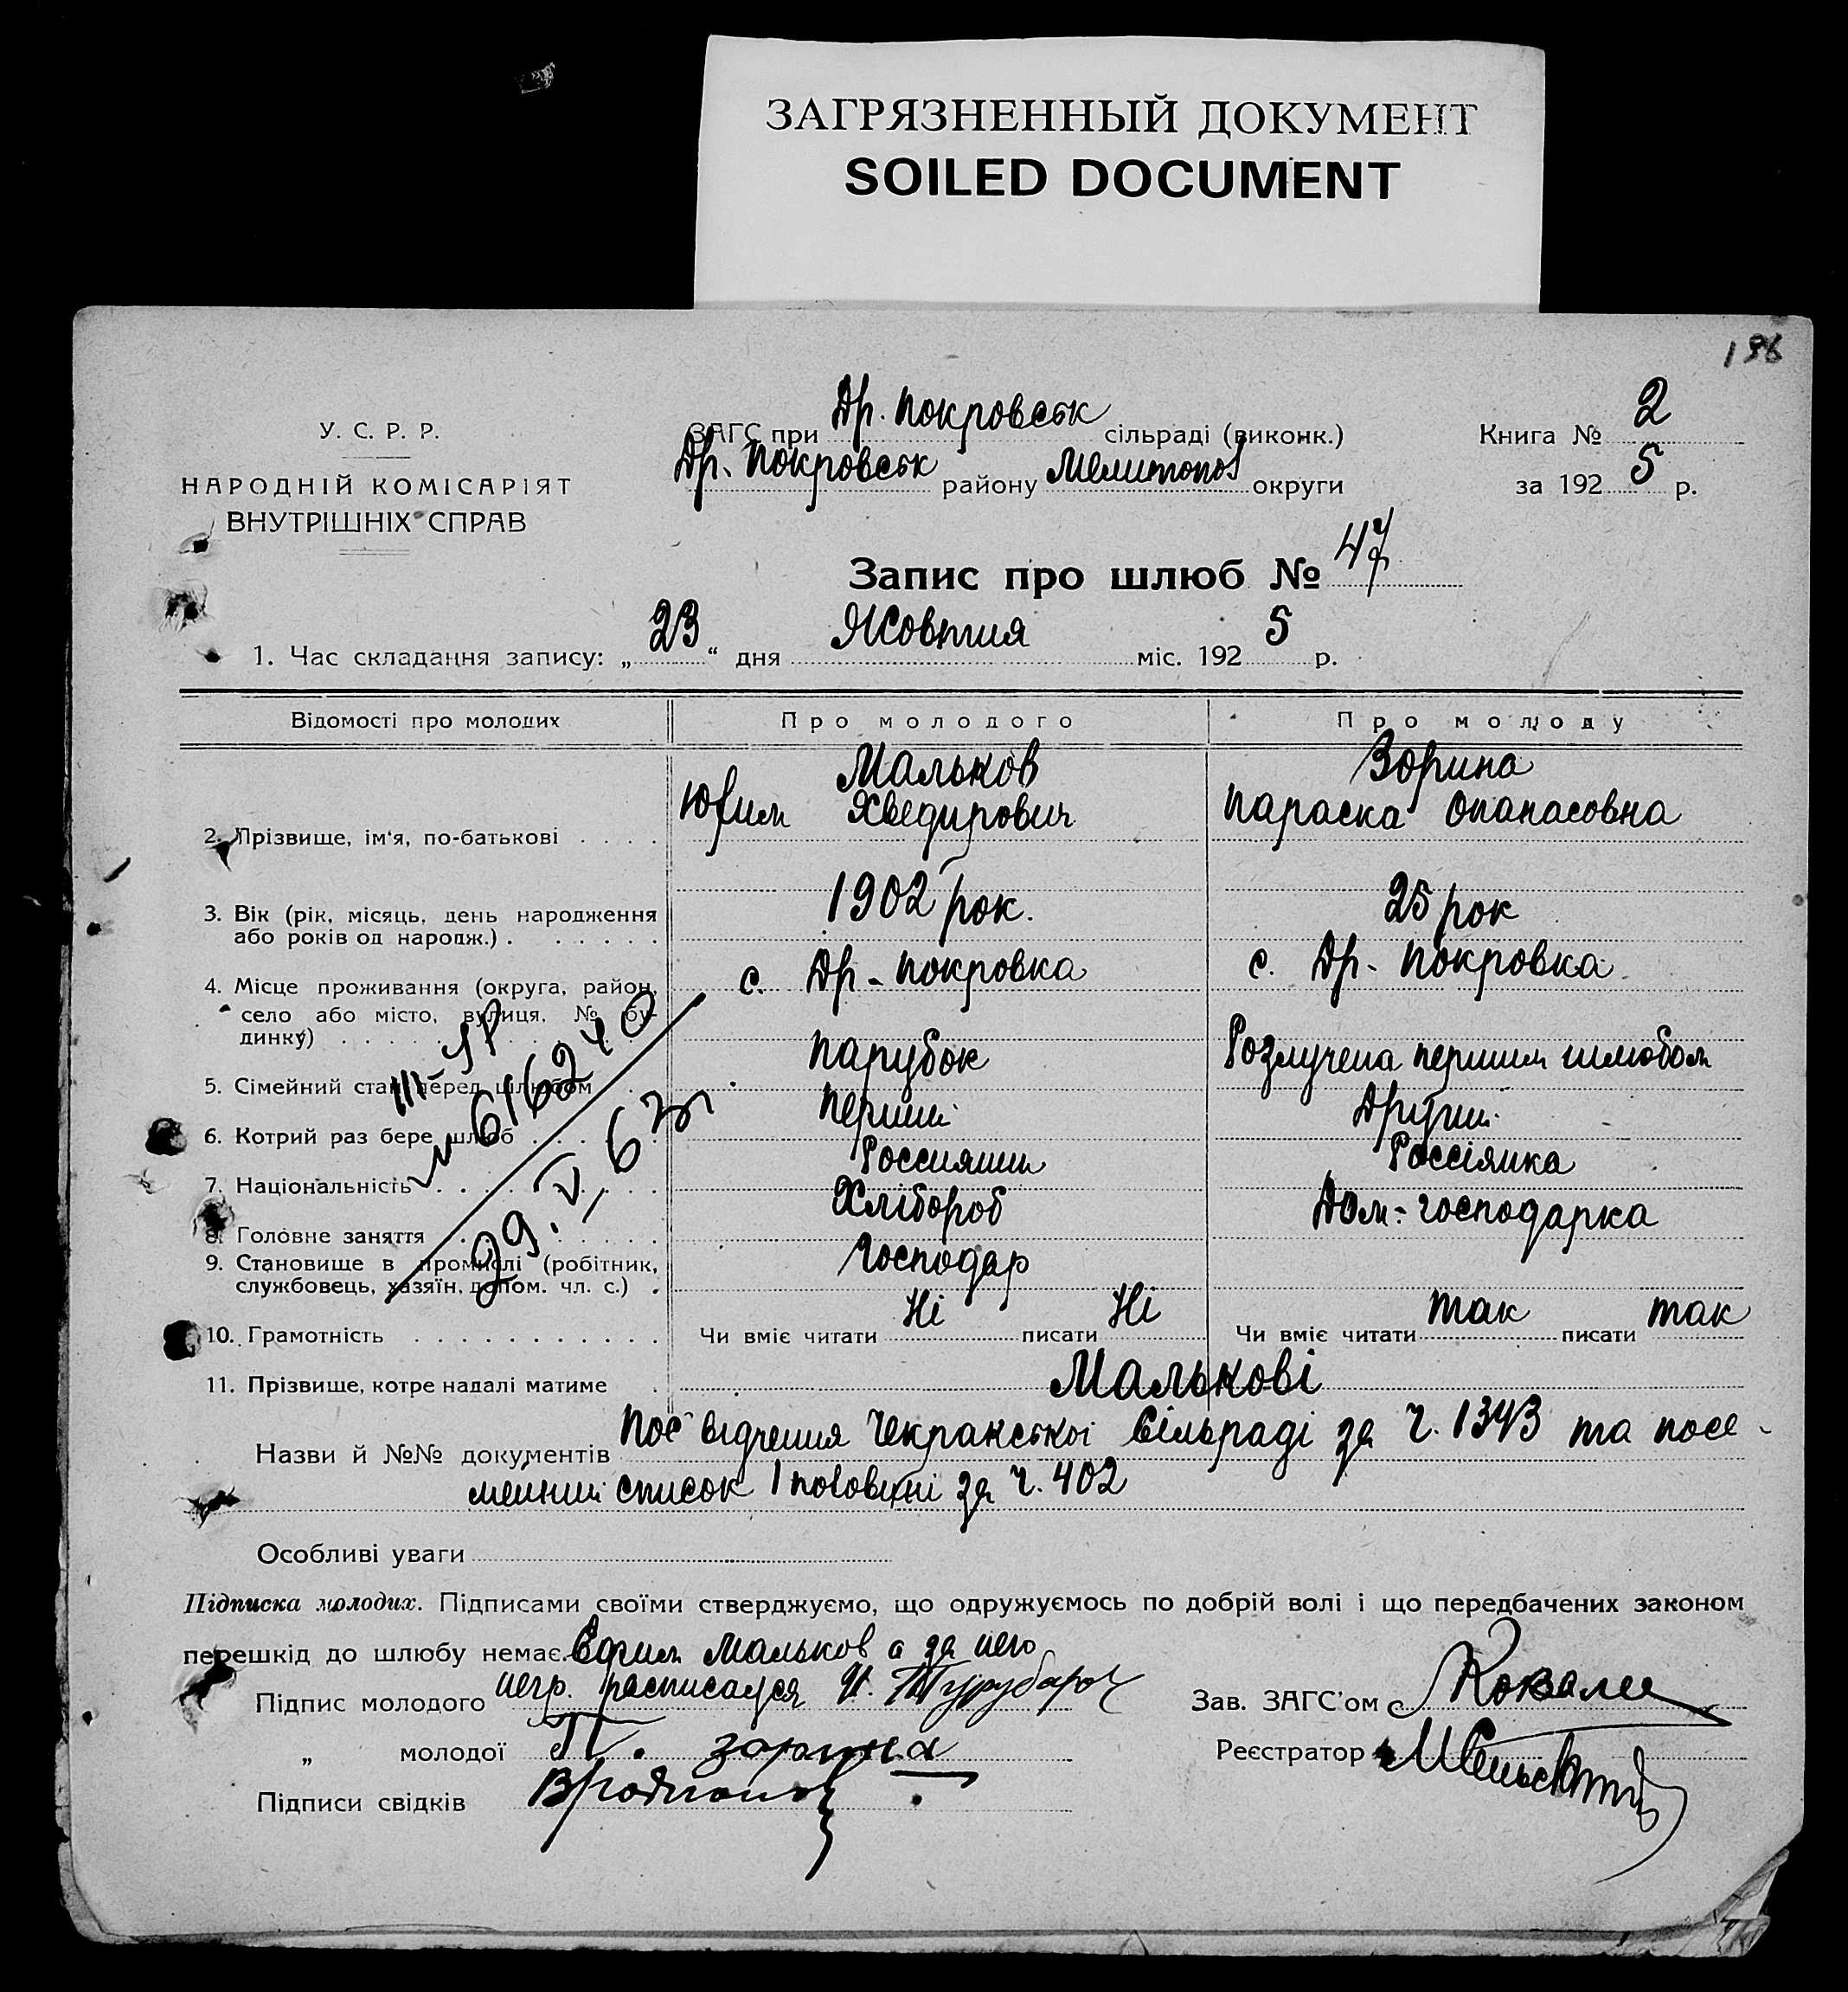 ЗАГРЯЗНЕННЫЙ ДОКУМЕНТ
SOILED DOCUMENT
196
У. С. Р. Р.
НАРОДНІЙ КОМІСАРІЯТ
ВНУТРІШНІХ СПРАВ
ЗАГС при Др. Покровськ сільраді (виконк.)
Др. Покровськ району Мелитопол округи
Книга № 2
за 1925 р.
Запис про шлюб № 47
1. Час складання запису: „23“ дня Жовтня міс. 1925 р.
Відомості про молодих Про молодого Про молоду
Мальков Зорина
2. Прізвище, ім'я, по-батькові . . . . Юхим Хведирович Параска Опанасовна
3. Вік (рік, місяць, день народження 1902 рок. 25 рок
або років од народж.) . . . . . .
4. Місце проживання (округа, район, с. Др-Покровка с. Др-Покровка
село або місто, вулиця, № бу-
динку) . . . . . .
5. Сімейний стан перед шлюбом . . Парубок Розлучена першим шлюбом
6. Котрий раз бере шлюб . . . . . Перший Другий
7. Національність . . . . . . Россиянин Россіянка
8. Головне заняття . . . . . . Хлібороб Дом-господарка
9. Становище в промислі (робітник, Господар
службовець, хазяїн, допом. чл. с.) .
10. Грамотність . . . . . . . . . . . Чи вміє читати Ні писати Ні Чи вміє читати так писати так
11. Прізвище, котре надалі матиме . Малькові
III-ЯР
616240
29.V-63
Назви й №№ документів Посвідчення Чекранської Сільраді за Ч. 1343 та посе-
мейний список 1 половині за ч. 402
Особливі уваги
Підписка молодих. Підписами своїми стверджуємо, що одружуємось по добрій волі і що передбачених законом
перешкід до шлюбу немає. Ефим Мальков а за него
Підпис молодого негр. расписался И.
„ молодої П. зорина
Підписи свідків
Зав. ЗАГС'ом
Реєстратор